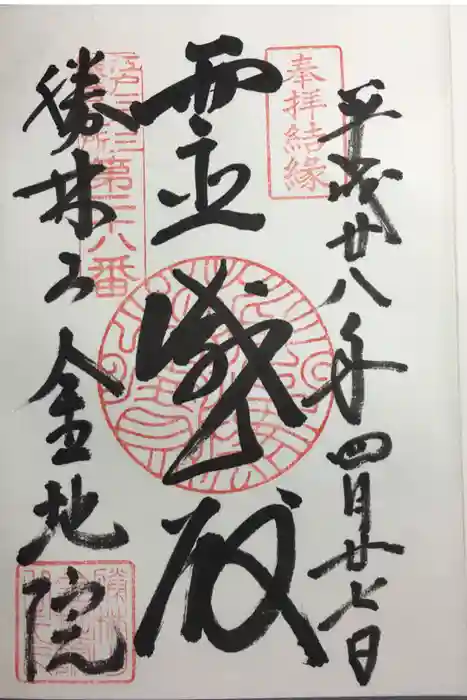 奉拝結縁
平成廿八年四月廿七日
霊感殿
江戸三十三
所第二十八番
勝林山金地院